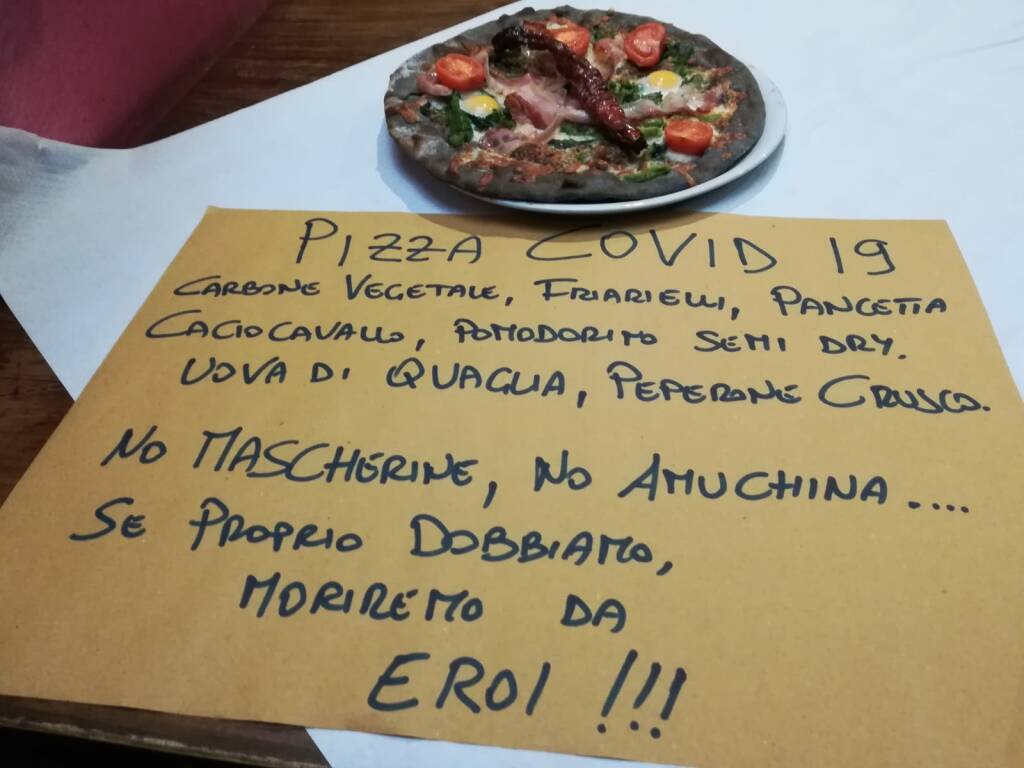 PIZZA COVID 19
CARBONE VEGETALE, FRIARIELLI, PANCETTA
CACIOCAVALLO, POMODORINO SEMI DRY.
UOVA DI QUAGLIA, PEPERONE CRUSCO.
NO MASCHERINE, NO AMUCHINA ....
SE PROPRIO DOBBIAMO,
MORIREMO DA
EROI !!!